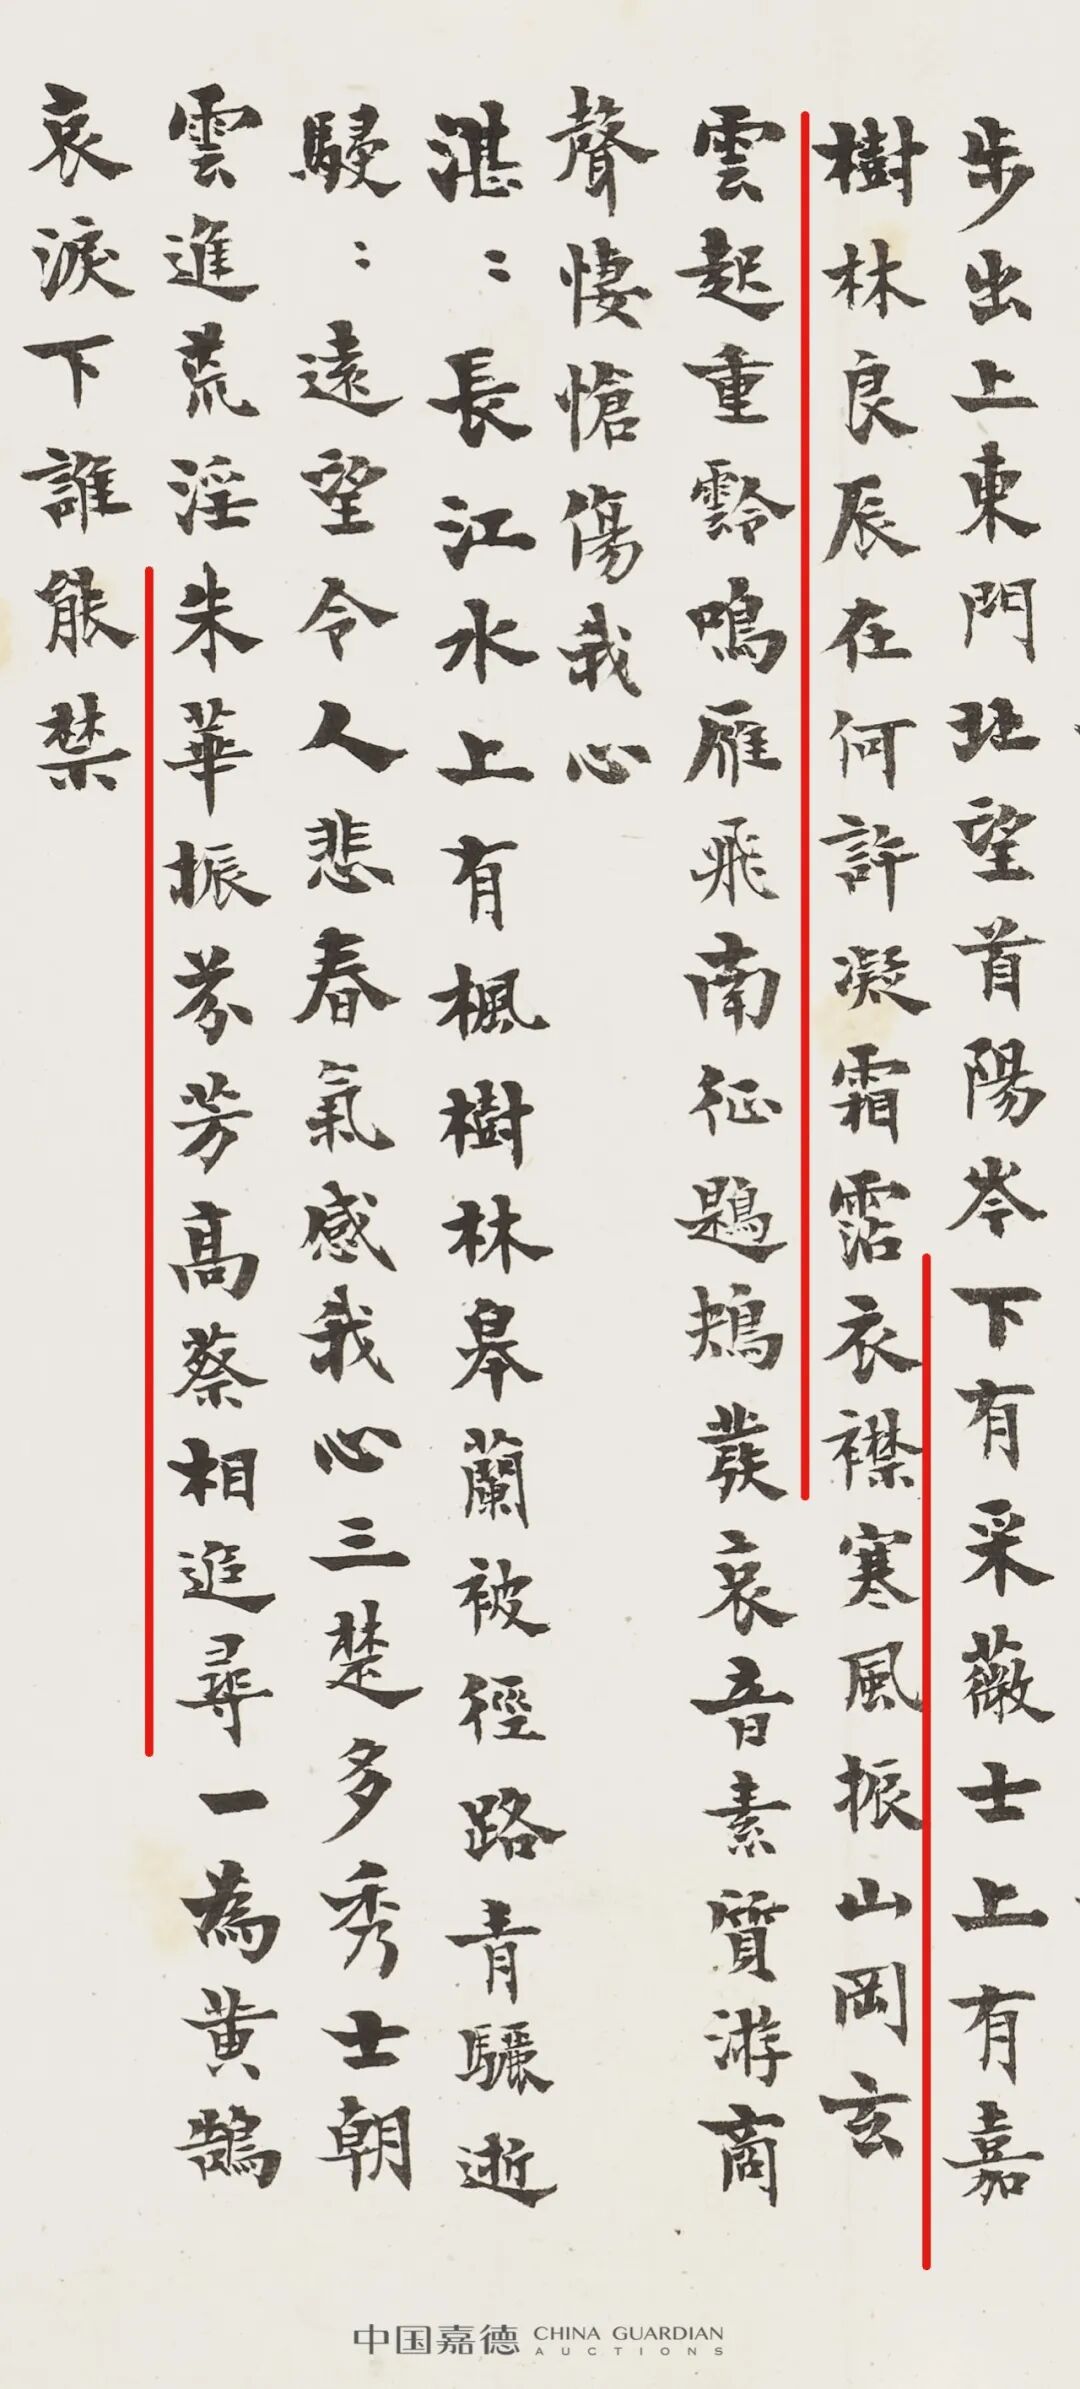 步出上東門北望首陽岑下有采薇士上有嘉
樹林良辰在何許凝霜霑衣襟寒風振山岡玄
雲起重黔鳴雁飛南征鶗鴂發哀音素質游商
聲悽愴傷我心
湛：長江水上有楓樹林皋蘭被徑路青驪逝
駸：遠望令人悲春氣感我心三楚多秀士朝
雲進荒淫朱華振芬芳高蔡相追尋一為黃鵠
哀淚下誰能禁
中国嘉德 CHINA GUARDIAN
AUCTIONS